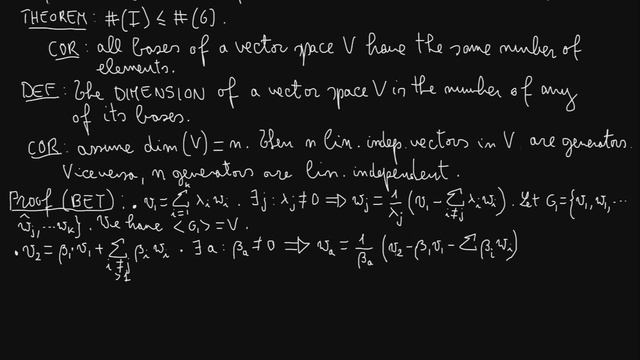 THEOREM: #(I) ≤ #(G).
COR: all bases of a vector space V have the same number of
elements.
DEF: the DIMENSION of a vector space V is the number of any
of its bases.
COR: assume dim(V) = n. then n lin. indep. vectors in V are generators.
Viceversa, n generators are lin. independent.
Proof (BET): • v₁ = ∑_{i=1}^{k} λᵢwᵢ . ∃j : λⱼ ≠ 0 ⟹ wⱼ = 1/λⱼ (v₁ − ∑_{i≠j} λᵢwᵢ). Let G₁ = {v₁, w₁, ...
ŵⱼ, ... wₖ}. We have <G₁> = V.
• v₂ = β₁·v₁ + ∑_{i≠j, >1} βᵢwᵢ . ∃a : βₐ ≠ 0 ⟹ wₐ = 1/βₐ (v₂ − β₁v₁ − ∑ βᵢwᵢ)